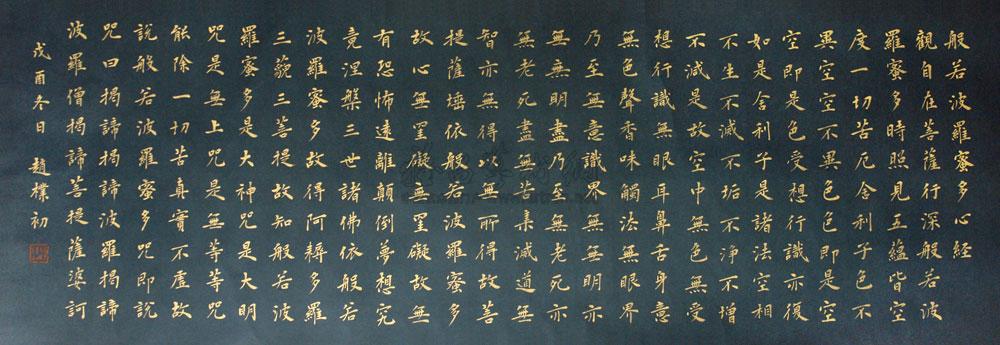 般若波羅蜜多心經
觀自在菩薩行深般若波
羅蜜多時照見五蘊皆空
度一切苦厄舍利子色不
異空空不異色色即是空
空即是色受想行識亦復
如是舍利子是諸法空相
不生不滅不垢不淨不增
不減是故空中無色無受
想行識無眼耳鼻舌身意
無色聲香味觸法無眼界
乃至無意識界無無明亦
無無明盡乃至無老死亦
無老死盡無苦集滅道無
智亦無得以無所得故菩
提薩埵依般若波羅蜜多
故心無罣礙無罣礙故無
有恐怖遠離顛倒夢想究
竟涅槃三世諸佛依般若
波羅蜜多故得阿耨多羅
三藐三菩提故知般若波
羅蜜多是大神咒是大明
咒是無上咒是無等等咒
能除一切苦真實不虛故
說般若波羅蜜多咒即說
咒曰揭諦揭諦波羅揭諦
波羅僧揭諦菩提薩婆訶
戊酉冬日 趙樸初